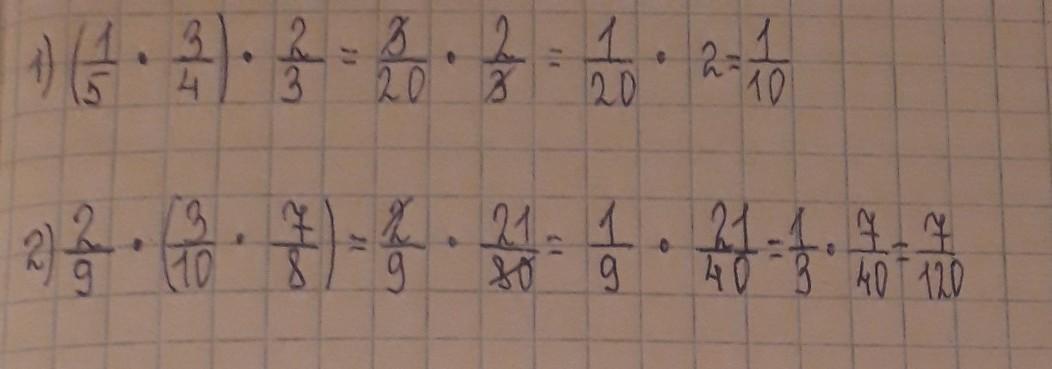 1) (1/5 · 3/4) · 2/3 = 3/20 · 2/3 = 1/20 · 2 = 1/10
2) 2/9 · (3/10 · 7/8) = 2/9 · 21/80 = 1/9 · 21/40 = 1/3 · 7/40 = 7/120